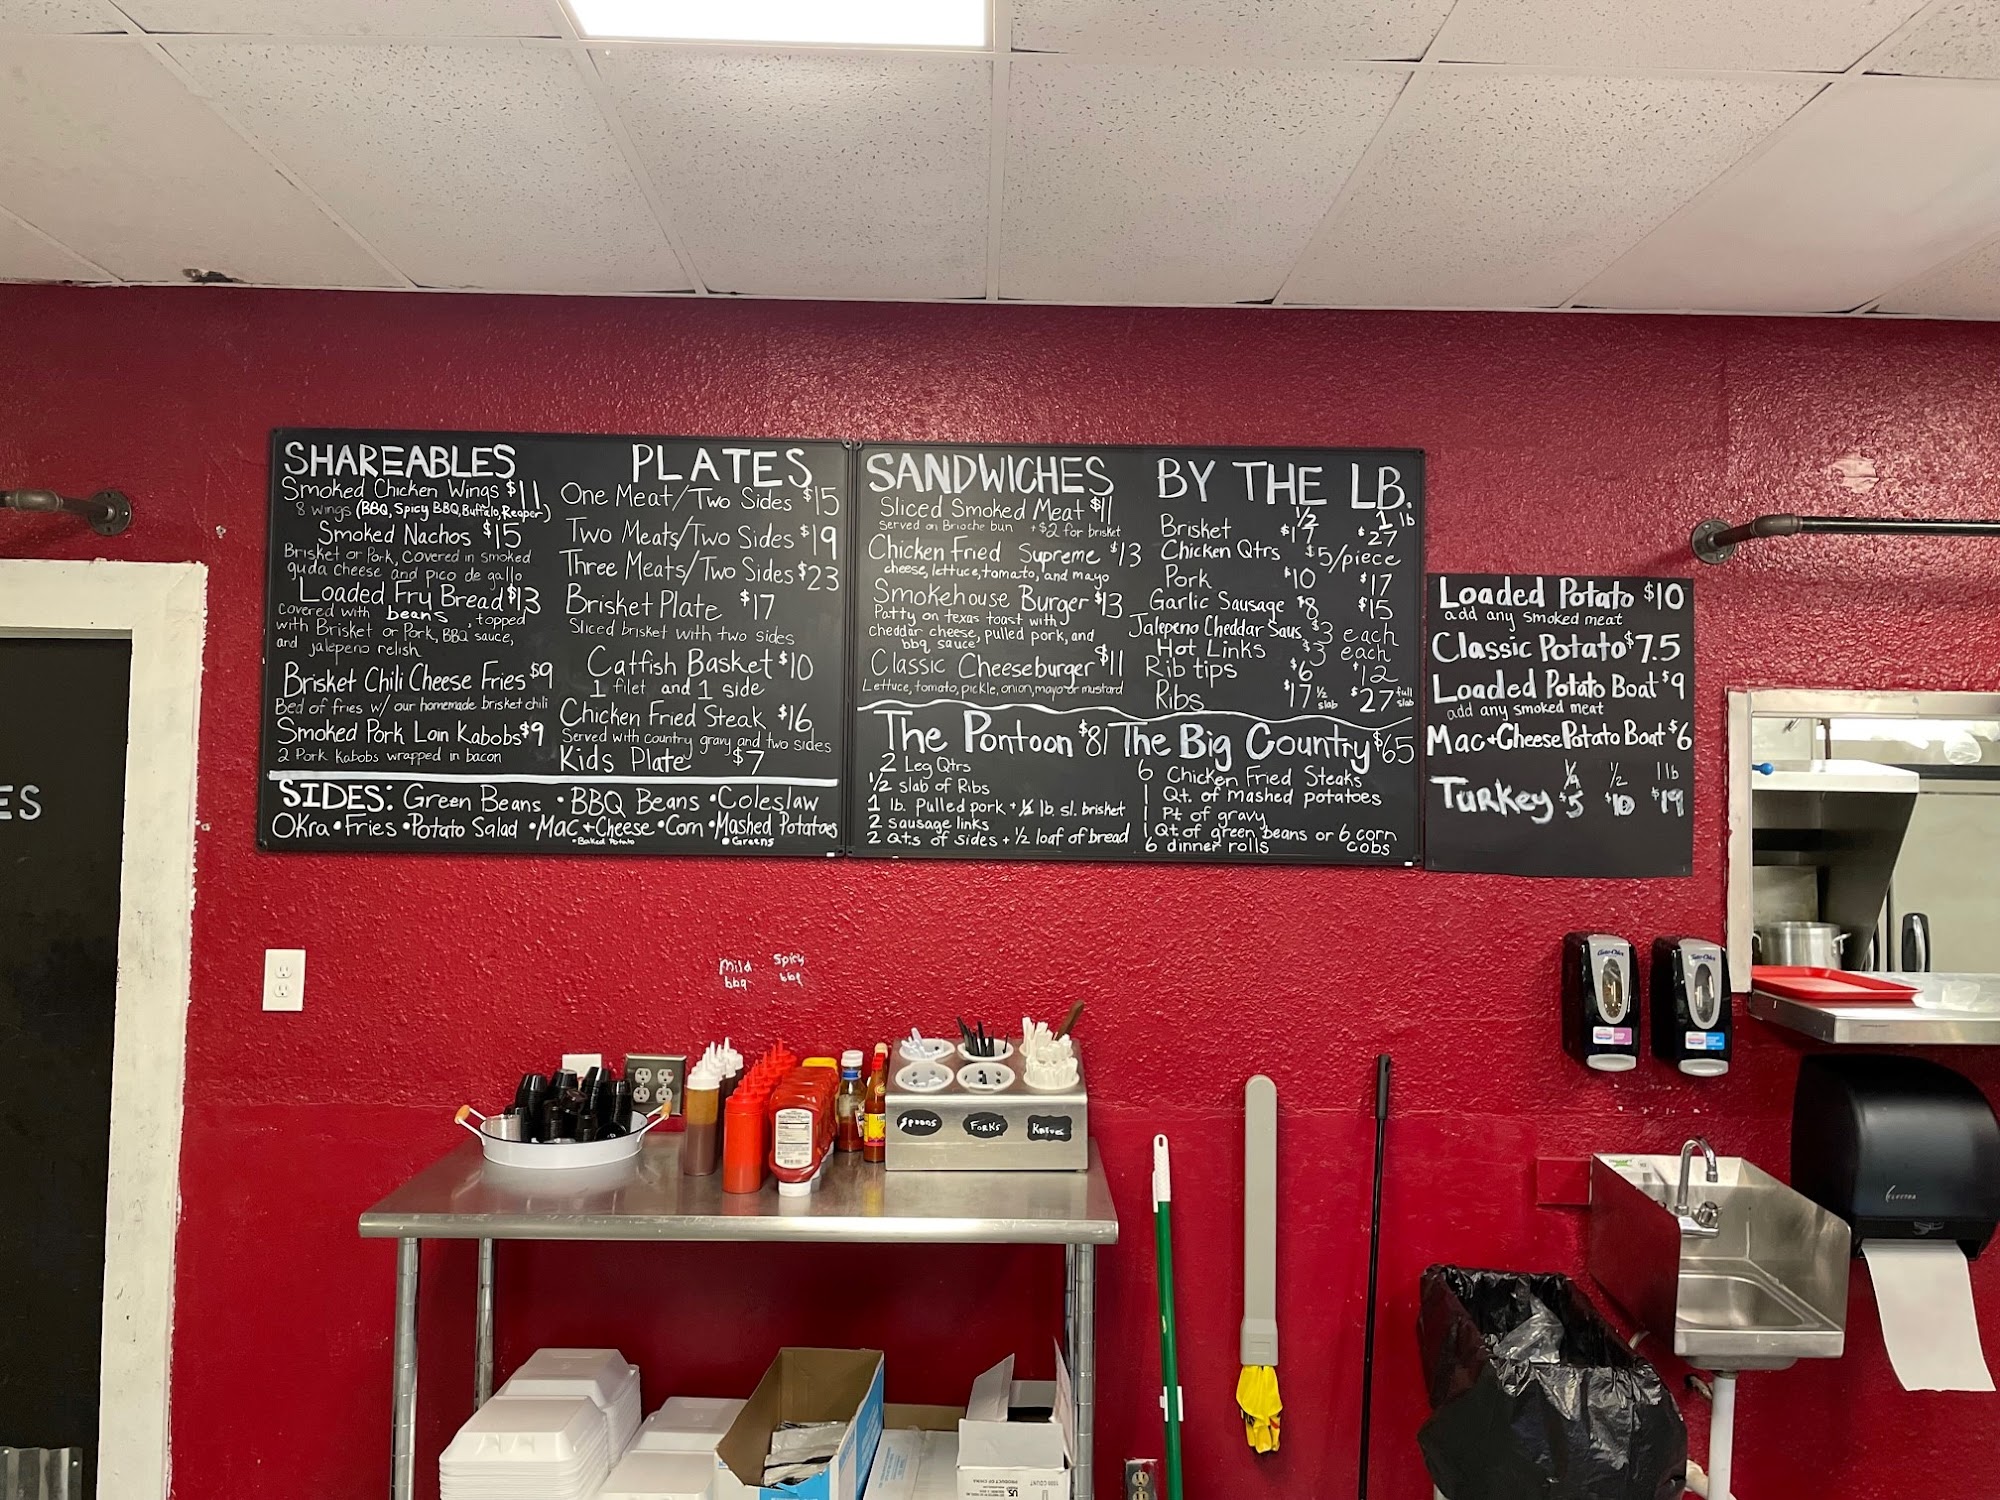 SHAREABLES
Smoked Chicken Wings $11
8 wings (BBQ, Spicy BBQ, Buffalo, Reaper)
Smoked Nachos $15
Brisket or Pork, Covered in smoked
guda cheese and pico de gallo
Loaded Fry Bread $13
covered with beans, topped
with Brisket or Pork, BBQ sauce,
and jalepeno relish
Brisket Chili Cheese Fries $9
Bed of fries w/ our homemade brisket chili
Smoked Pork Loin Kabobs $9
2 Pork Kabobs wrapped in bacon
PLATES
One Meat/Two Sides $15
Two Meats/Two Sides $19
Three Meats/Two Sides $23
Brisket Plate $17
Sliced brisket with two sides
Catfish Basket $10
1 filet and 1 side
Chicken Fried Steak $16
Served with country gravy and two sides
Kids Plate $7
SIDES: Green Beans • BBQ Beans • Coleslaw
Okra • Fries • Potato Salad • Mac + Cheese • Corn • Mashed Potatoes
• Baked Potato • Greens
SANDWICHES
Sliced Smoked Meat $11
Served on Brioche bun +$2 for brisket
Chicken Fried Supreme $13
cheese, lettuce, tomato, and mayo
Smokehouse Burger $13
Patty on texas toast with
cheddar cheese, pulled pork, and
bbq sauce
Classic Cheeseburger $11
Lettuce, tomato, pickle, onion, mayo or mustard
BY THE LB.
1/2 1 lb
Brisket $17 $27
Chicken Qtrs $5/piece
Pork $10 $17
Garlic Sausage $8 $15
Jalepeno Cheddar Saus. $3 each
Hot Links $3 each
Rib tips $6 $12
Ribs $17 1/2 slab $27 full slab
The Pontoon $81
2 Leg Qtrs
1/2 slab of Ribs
1 lb. Pulled pork + 1/2 lb. sl. brisket
2 sausage links
2 Qts of sides + 1/2 loaf of bread
The Big Country $65
6 Chicken Fried Steaks
1 Qt. of mashed potatoes
1 Pt of gravy
1 Qt. of green beans or 6 corn
cobs
6 dinner rolls
Loaded Potato $10
add any smoked meat
Classic Potato $7.5
Loaded Potato Boat $9
add any smoked meat
Mac + Cheese Potato Boat $6
1/4 1/2 1 lb
Turkey $5 $10 $19
ES
Mild
bbq
Spicy
bbq
Spoons
Forks
Knives